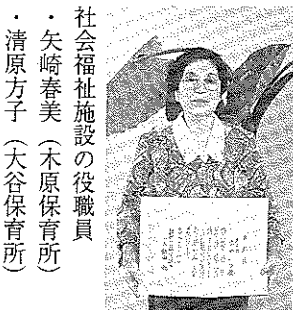 社会福祉施設の役職員
・矢崎春美（木原保育所）
・清原方子（大谷保育所）